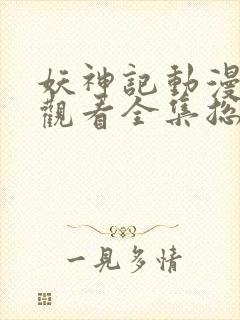 妖神記動漫
觀看全集總
一見多情